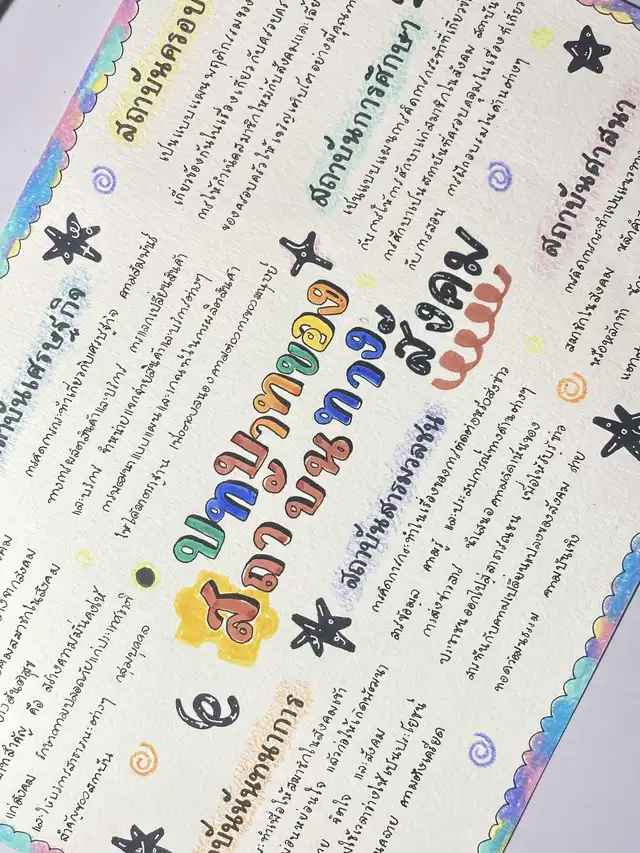 สถาบันครอบ
เป็นแบบแผนพฤติกรรมของ
เกี่ยวข้องกันในเรื่องเกี่ยวกับครอบคร
การให้กำเนิดสมาชิกใหม่กับสังคมและเลี้ย
ของครอบครัวให้เจริญเติบโตอย่างมีคุณภา
สถาบันการศึกษา
เป็นแบบแผนการคิดการกระทำที่เกี่ยวข้
กับการให้การศึกษาแก่สมาชิกในสังคม สถาบัน
การศึกษาเป็นสถาบันที่ครอบคลุมในเรื่องที่เกี่ยว
กับการสอน การฝึกอบรมในด้านต่างๆ
สถาบันศาสนา
การคิดการกระทำเป็นแนวทาง
สมาชิกในสังคม หลักคำ
หรือหลักการทำ
บันเศรษฐกิจ
การคิดการกระทำเกี่ยวกับเศรษฐกิจ ความสัมพันธ์
ทางการผลิตสินค้าและบริการ การแลกเปลี่ยนสินค้า
และบริการ จำหน่ายแจกจ่ายสินค้าและบริการต่างๆ
การพัฒนาแบบแผนและเกณฑ์ในการผลิตสินค้า
ให้ได้มาตรฐาน ตอบสนองความต้องการของมนุษย์
บทบาทของ
สถาบันทาง
สังคม
สถาบันสารมวลชน
การคิดการกระทำในเรื่องของการติดต่อหรือส่งข่าว
สารข้อมูล ความรู้ และประสบการณ์ทางด้านต่างๆ
การส่งข่าวสาร นำเสนอความคิดเห็นของ
ประชาชนออกไปสู่สาธารณชน เพื่อให้รับรู้ข่าว
สารทันกับความเปลี่ยนแปลงของสังคม ถ่าย
ทอดวัฒนธรรม ความบันเทิง
คมสมาชิกในสังคม
สำคัญ คือ สร้างความมั่นคงให้
แก่สังคม รักษาความปลอดภัยแก่ประเทศชาติ
และให้บริการสาธารณะต่างๆ กลุ่มบุคคล
สำคัญของสถาบัน
าบันนันทนาการ
ะทำเพื่อให้สมาชิกในสังคมเข้า
่อนหย่อนใจ แล้วก่อให้เกิดพัฒนา
จิตใจ และสังคม
ใช้เวลาว่างให้เป็นประโยชน์
ความตึงเครียด